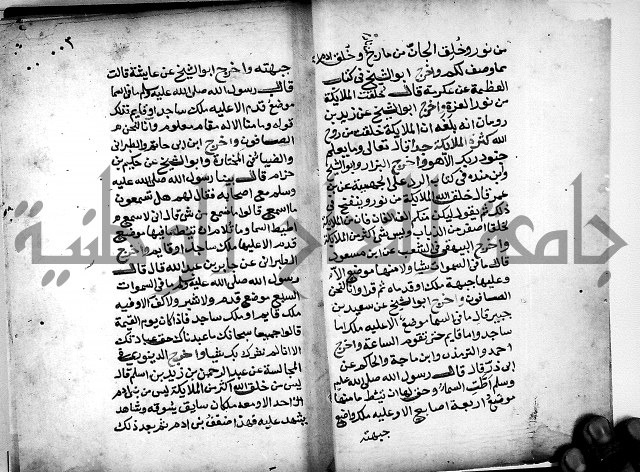 من نور وخلق الجان من مارج وخلق ادم
مما وصف لكم واخرج ابو الشيخ في كتاب
العظمة عن عكرمة قال خلقت الملائكة
من نور العزة واخرج ابو الشيخ عن يزيد بن
رومان انه بلغه ان الملائكة خلقت من روح
الله كثرة الملائكة جدا قال تعالى وما يعلم
جنود ربك الا هو واخرج البزار وابو الشيخ
وابن منده في كتاب الرد على الجهمية عن بن
عمر قال خلق الله الملائكة من نور وينفخ في
ذلك ثم يقول ليكن منكم الف الفان فان من الملائكة
خلقا اصغر من الذباب وليس شي اكثر من الملائكة
واخرج البيهقي في الشعب عن ابن مسعود
قال ان من السموات سماء ما منها موضع الا
وعليها جبهة ملك او قدماه ثم قرا وانا لنحن
الصافون واخرج ابو الشيخ عن سعيد بن
جبير قال ما في السما موضع الا عليه ملك اما
ساجد واما قايم حتى تقوم الساعة واخرج
احمد والترمذي وابن ماجة والحاكم عن
ابي ذر قال قال رسول الله صلى الله عليه
وسلم اطت السماء وحق لها ان تئط ما منها
موضع اربعة اصابع الا وعليه ملك واضع
جبهته
جبهته واخرج ابو الشيخ عن عايشة قالت
قال رسول الله صلى الله عليه وسلم ما في السما
موضع قدم الا عليه ملك ساجد او قايم فذلك
قوله وما منا الا له مقام معلوم وانا لنحن
الصافون واخرج ابن ابي حاتم والطبراني
والضيا في المختارة وابو الشيخ عن حكيم بن
حزام قال بينا رسول الله صلى الله عليه
وسلم مع اصحابه فقال لهم هل تسمعون
ما اسمع قالوا ما نسمع من شي قال اني لاسمع
اطيط السما وما تلام ان تئط ما فيها موضع
قدم الا وعليها ملك ساجد او قايم واخرج
الطبراني عن جابر بن عبد الله قال قال
رسول الله صلى الله عليه وسلم ما في السموات
السبع موضع قدم ولا شبر ولا كف الا وفيه
ملك قايم او ملك ساجد فاذا كان يوم القيمة
قالوا جميعا سبحانك ما عبدناك حق عبادتك
الا انا لم نشرك بك شيا واخرج الدينوري في
المجالسة عن عبد الرحمن بن زيد بن اسلم قال
ليس من خلق الله اكثر من الملائكة ليس من بني ادم
احد الا ومعه ملكان سايق يسوقه وشاهد
يشهد عليه فهذا ضعف بني ادم ثم بعد ذلك
جامعة النجاح الوطنية